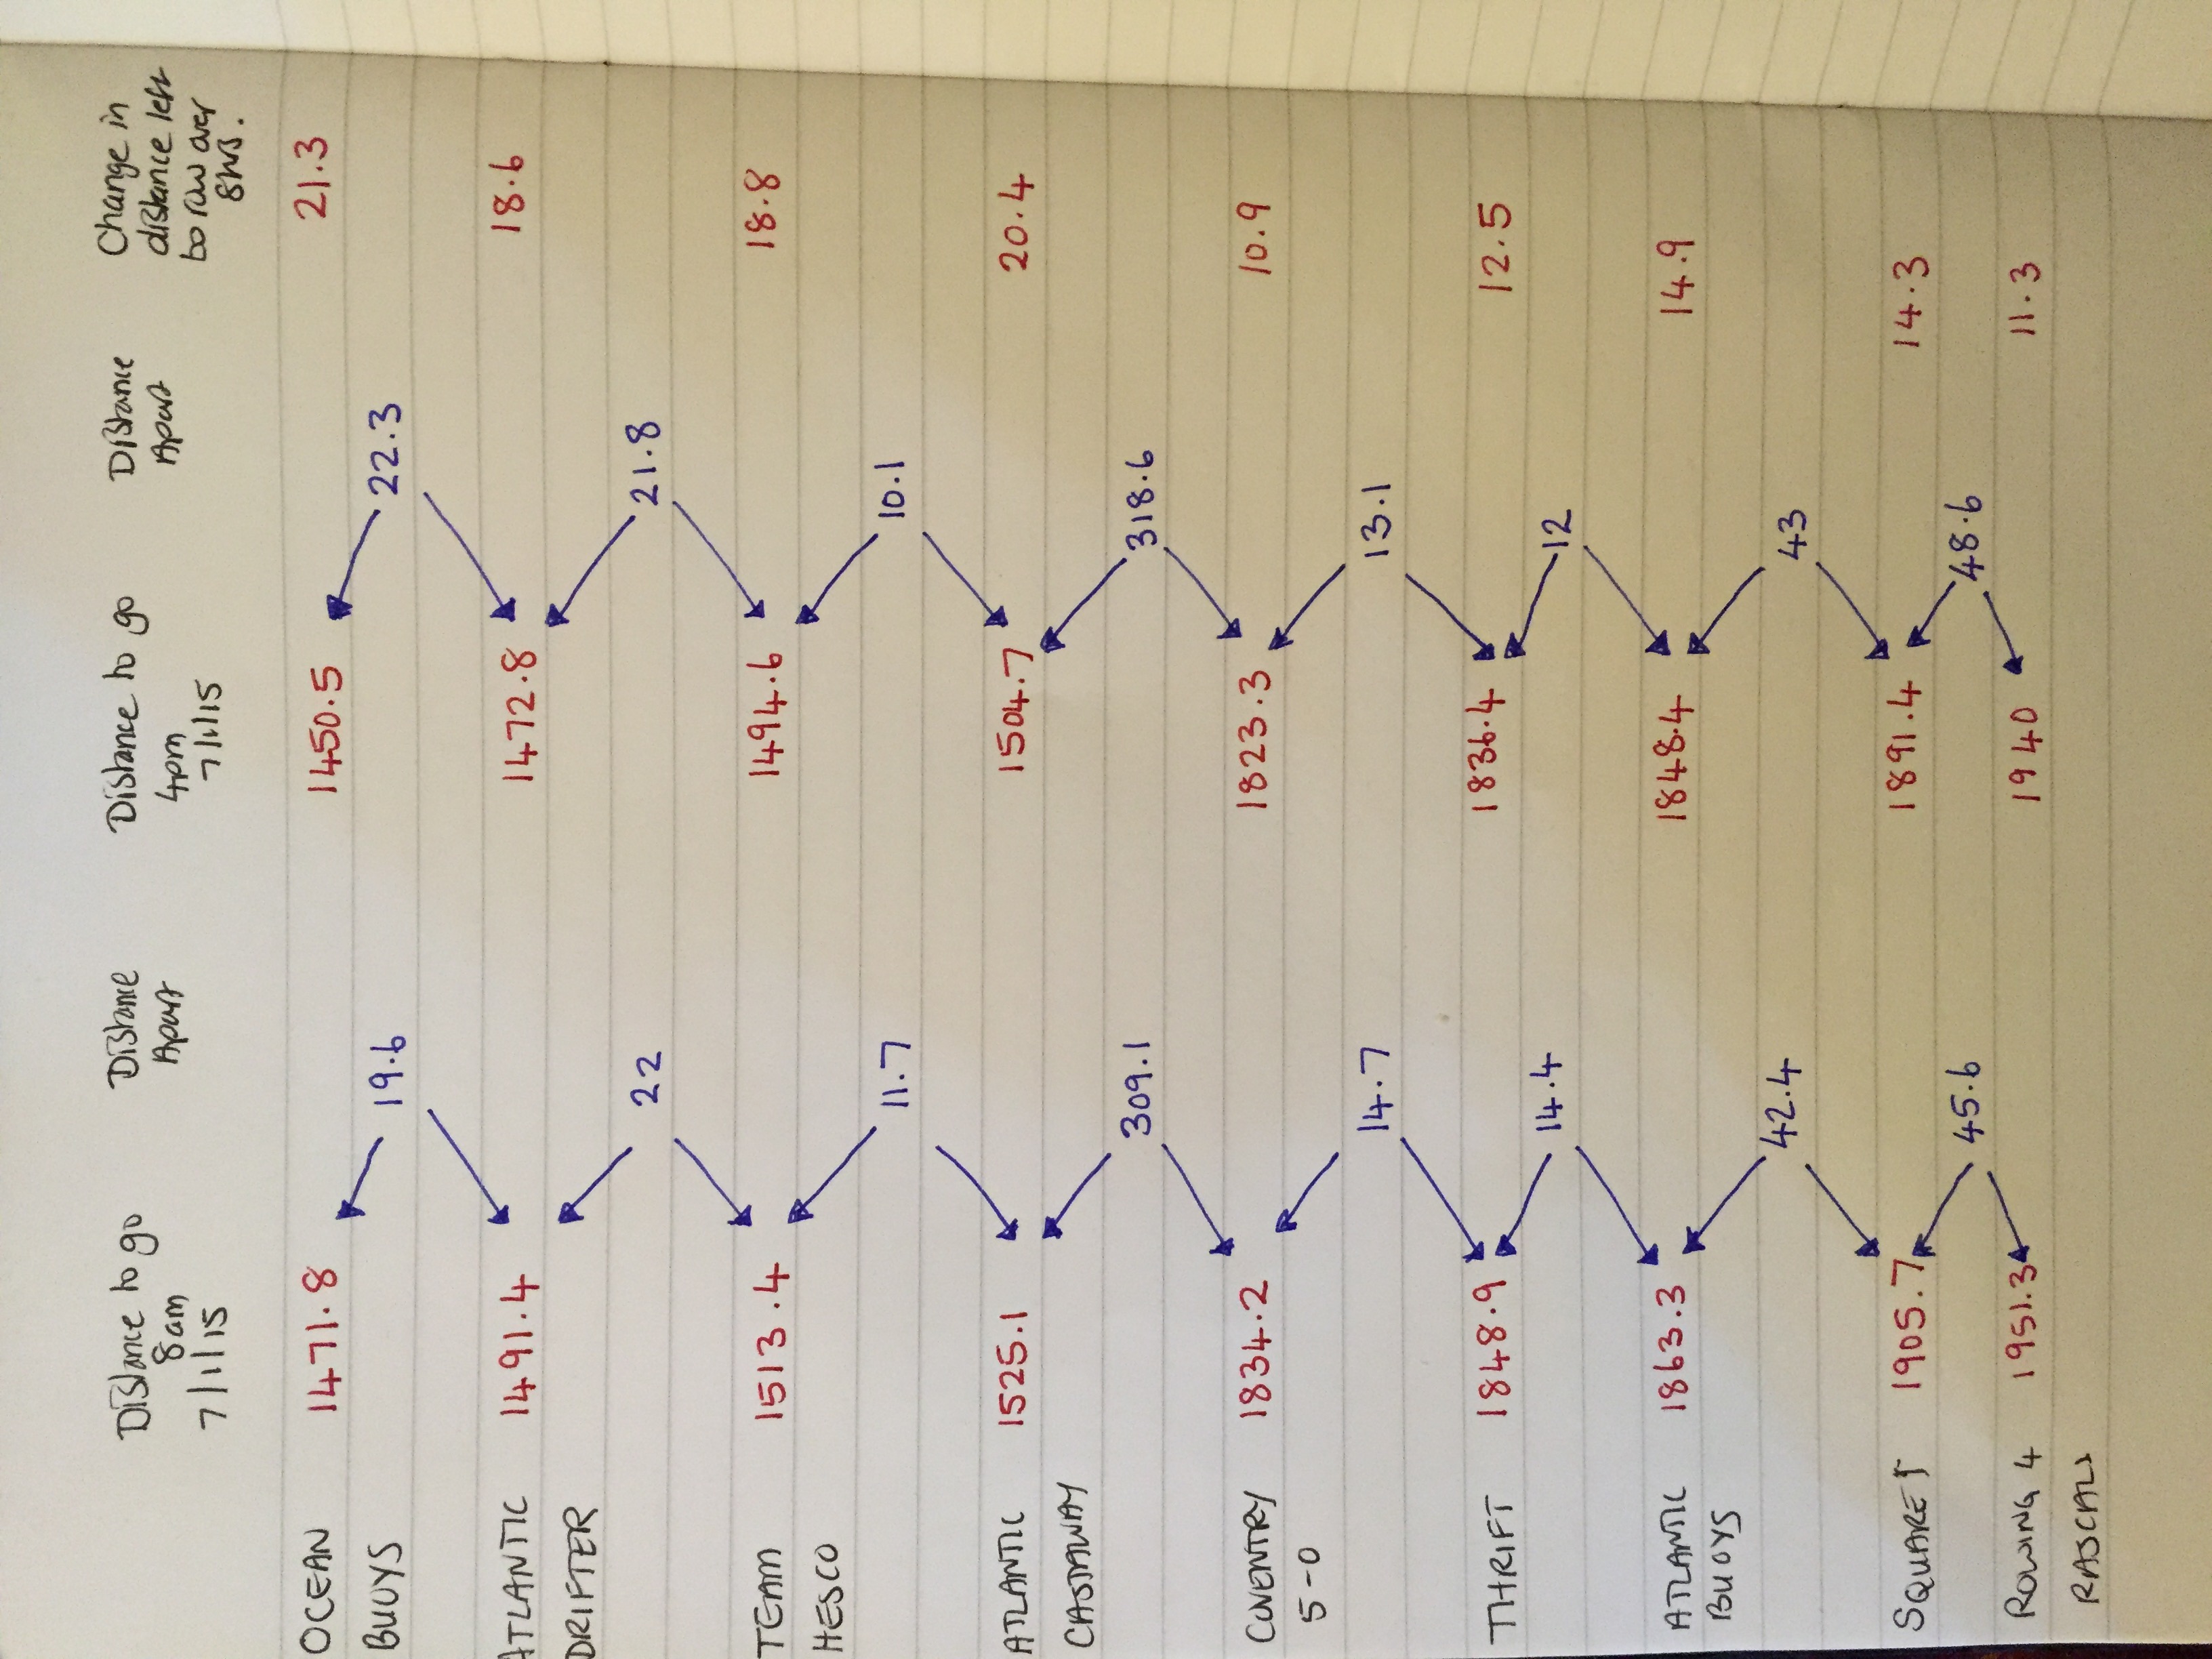 Distance to go Distance Distance to go Distance Change in
8am Apart 4pm Apart distance left
7/1/15 7/1/15 to row over
8hrs.
OCEAN 1471.8 1450.5 21.3
BUOYS 19.6 22.3
ATLANTIC 1491.4 1472.8 18.6
DRIFTER
22 21.8
TEAM 1513.4 1494.6 18.8
HESCO
11.7 10.1
ATLANTIC 1525.1 1504.7 20.4
CASTAWAY
309.1 318.6
COVENTRY 1834.2 1823.3 10.9
5-0
14.7 13.1
THRIFT 1848.9 1836.4 12.5
14.4 12
ATLANTIC 1863.3 1848.4 14.9
BUOYS
42.4 43
SQUARE 1905.7 1891.4 14.3
45.6 48.6
ROWING 4 1951.3 1940 11.3
RASCALS